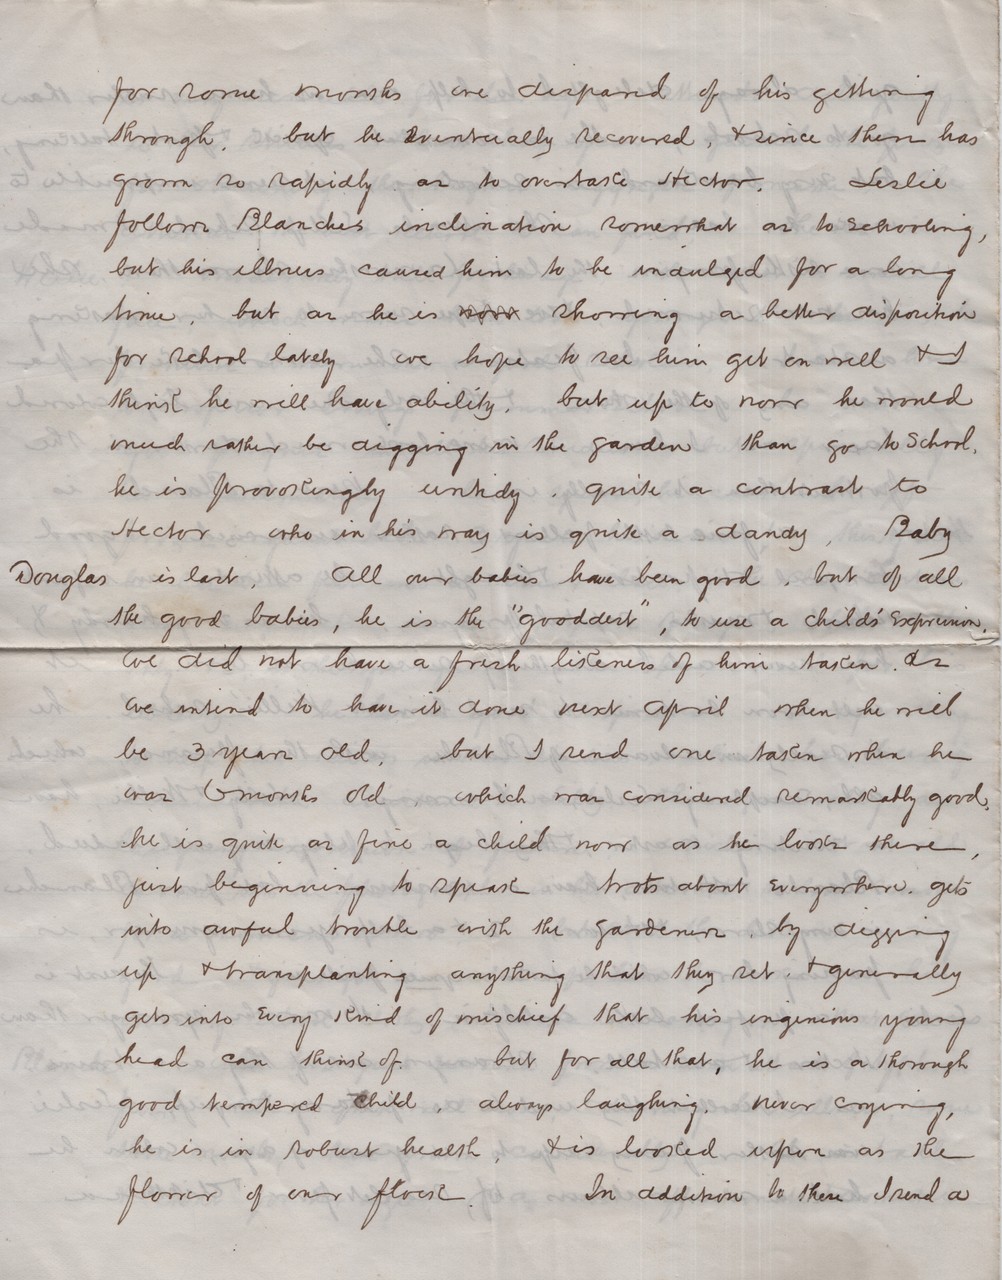 for some months we dispared of his getting
through, but he eventually recovered, & since then has
grown so rapidly as to overtake Hector. Leslie
follows Blanches inclination somewhat as to schooling,
but his illness caused him to be indulged for a long
time, but as he is showing a better disposition
for school lately we hope to see him get on well & I
think he will have ability, but up to now he would
much rather be digging in the garden than go to School,
he is provokingly untidy, quite a contrast to
Hector who in his way is quite a dandy, Baby
Douglas is last, All our babies have been good, but of all
the good babies, he is the "gooddest", to use a childs' Expression,
we did not have a fresh likeness of him taken, as
we intend to have it done next April when he will
be 3 years old, but I send one taken when he
was 6 months old, which was considered remarkably good,
he is quite as fine a child now as he looks there,
just beginning to speak trots about Everywhere, gets
into awful trouble with the gardeners, by digging
up & transplanting anything that they set, & generally
gets into Every kind of mischief that his ingenious young
head can think of, but for all that, he is a thorough
good tempered Child, always laughing, never crying,
he is in robust health, & is looked upon as the
flower of our flock. In addition to these I send a